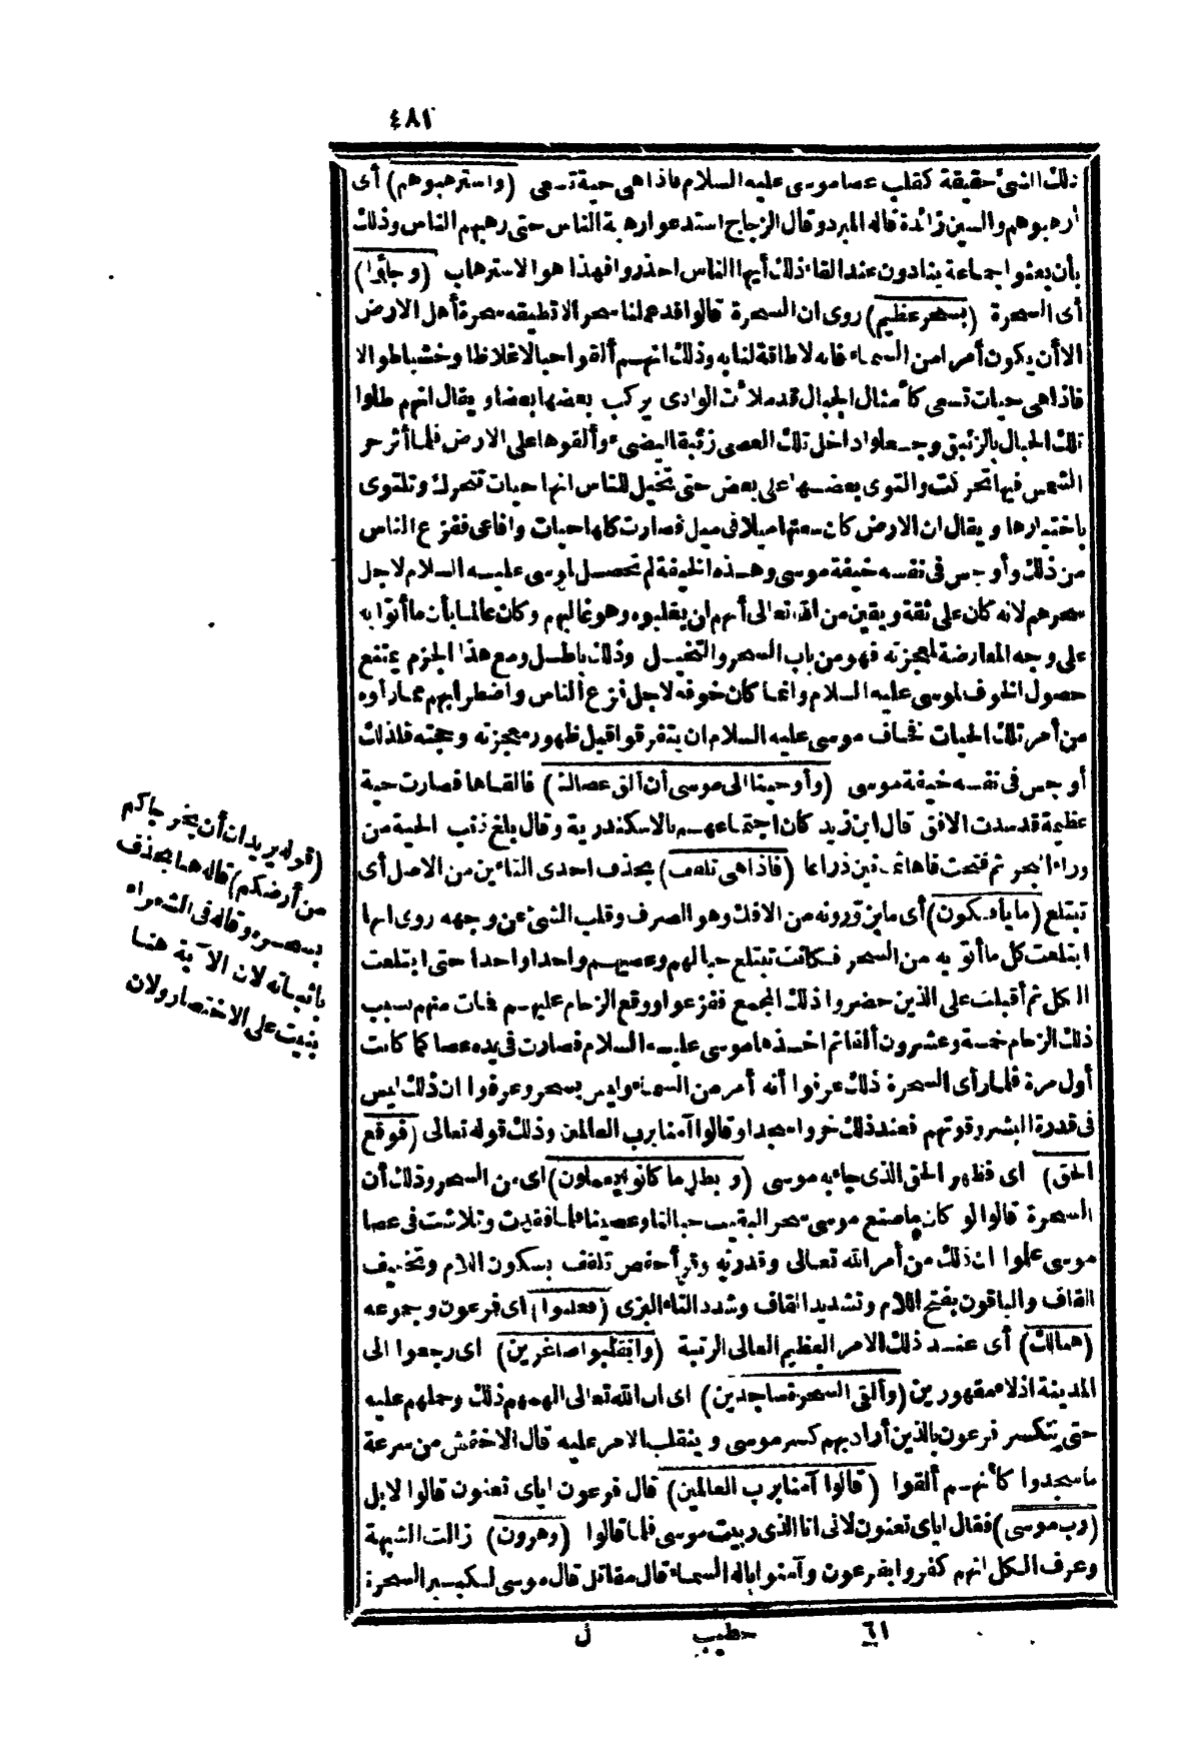 ٤٨١
ذلك الشئ حقيقة كقلب عصا موسى عليه السلام فاذا هى حية تسعى (واسترهبوهم) أى
أرهبوهم والسين زائدة قاله المبرد وقال الزجاج استدعوا رهبة الناس حتى رهبهم الناس وذلك
بأن بعثوا جماعة ينادون عند القاء ذلك أيها الناس احذروا فهذا هو الاسترهاب (وجاؤا)
أى السحرة (بسحر عظيم) روى ان السحرة قالوا قد عملنا سحرا لا تطيقه سحرة أهل الارض
الا أن يكون أمرا من السماء فانه لا طاقة لنا به وذلك انهم ألقوا حبالا غلاظا وخشبا طوالا
فاذا هى حيات تسعى كأمثال الجبال قد ملأت الوادى يركب بعضها بعضا ويقال انهم طلوا
تلك الحبال بالزئبق وجعلوا داخل تلك العصى زئبقا ايضا وألقوها على الارض فلما أثر حر
الشمس فيها تحركت والتوى بعضها على بعض حتى تخيل للناس انها حيات تتحرك وتلتوى
باختيارها ويقال ان الارض كان سعتها ميلا فى ميل فصارت كلها حيات وافاعى ففزع الناس
من ذلك وأوجس فى نفسه خيفة موسى وهذه الخيفة لم تحصل لموسى عليه السلام لاجل
سحرهم لانه كان على ثقة ويقين من الله تعالى أنهم لن يغلبوه وهو غالبهم وكان عالما بأن ما أتوا به
على وجه المعارضة لمعجزته فهو من باب السحر والتخييل وذلك باطل ومع هذا الجزم يمتنع
حصول الخوف لموسى عليه السلام وانما كان خوفه لاجل فزع الناس واضطرابهم مما رأوه
من أمر تلك الحيات فخاف موسى عليه السلام ان يتفرقوا قبل ظهور معجزته وحجته فلذلك
أوجس فى نفسه خيفة موسى (وأوحينا الى موسى أن ألق عصاك) فالقاها فصارت حية
عظيمة قد سدت الافق قال ابن زيد كان اجتماعهم بالاسكندرية وقال بلغ ذنب الحية من
وراء البحر ثم فتحت فاها ثمانين ذراعا (فاذا هى تلقف) بحذف احدى التاءين من الاصل أى
تبتلع (ما يأفكون) أى ما يزورونه من الافك وهو الصرف وقلب الشئ عن وجهه روى انها
ابتلعت كل ما أتو به من السحر فكانت تبتلع حبالهم وعصيهم واحدا واحدا حتى ابتلعت
الكل ثم أقبلت على الذين حضروا ذلك المجمع ففزعوا ووقع الزحام عليهم فمات منهم بسبب
ذلك الزحام خمسة وعشرون ألفا ثم اخذها موسى عليه السلام فصارت فى يده عصا كما كانت
أول مرة فلما رأى السحرة ذلك عرفوا أنه أمر من السماء وليس بسحر وعرفوا ان ذلك ليس
فى قدرة البشر وقوتهم فعند ذلك خروا سجدا وقالوا آمنا برب العالمين وذلك قوله تعالى (فوقع
الحق) اى فظهر الحق الذى جاء به موسى (وبطل ما كانوا يعملون) اى من السحر وذلك أن
السحرة قالوا لو كان ما صنع موسى سحرا لبقيت حبالنا وعصينا فلما فقدت وتلاشت فى عصا
موسى علموا ان ذلك من أمر الله تعالى وقدرته وقرأ حفص تلقف بسكون اللام وتخفيف
القاف والباقون بفتح اللام وتشديد القاف وشدد التاء البزى (فغلبوا) اى فرعون وجموعه
(هنالك) أى عند ذلك الامر العظيم العالى الرتبة (وانقلبوا صاغرين) اى رجعوا الى
المدينة اذلاء مقهورين (وألقى السحرة ساجدين) اى ان الله تعالى الهمهم ذلك وحملهم عليه
حتى ينكسر فرعون بالذين أراد بهم كسر موسى وينقلب الامر عليه قال الاخفش من سرعة
ما سجدوا كأنهم ألقوا (قالوا آمنا برب العالمين) قال فرعون اياى تعنون قالوا لا بل
(رب موسى) فقال اياى تعنون لانى انا الذى ربيت موسى فلما قالوا (وهرون) زالت الشبهة
وعرف الكل انهم كفروا بفرعون وآمنوا باله السماء قال مقاتل قال موسى لكبير السحرة
(قوله يريد ان أن يخرجاكم
من أرضكم) قاله هنا بحذف
بسحره وقاله فى الشعراء
باثباته لان الآية هنا
بنيت على الاختصار ولان
٦١ خطيب ل